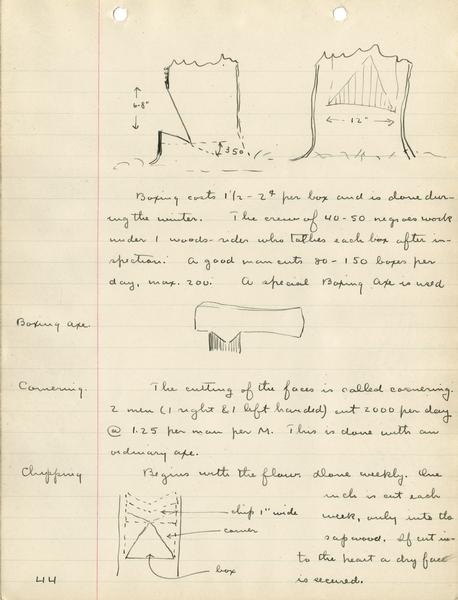 6-8"
35°
12"
Boxing costs 1½-2¢ per box and is done dur-
ing the winter. The crew of 40-50 negroes work
under 1 woods-rider who tallies each box after in-
spection. A good man cuts 80-150 boxes per
day, max. 200. A special Boxing Axe is used
Boxing axe.
Cornering. The cutting of the faces is called cornering.
2 men (1 right & 1 left handed) cut 2000 per day
@ 1.25 per man per M. This is done with an
ordinary axe.
Chipping Begins with the flow. Done weekly. One
inch is cut each
chip 1" wide week, only into the
corner sapwood. If cut in-
to the heart a dry face
box is secured.
44